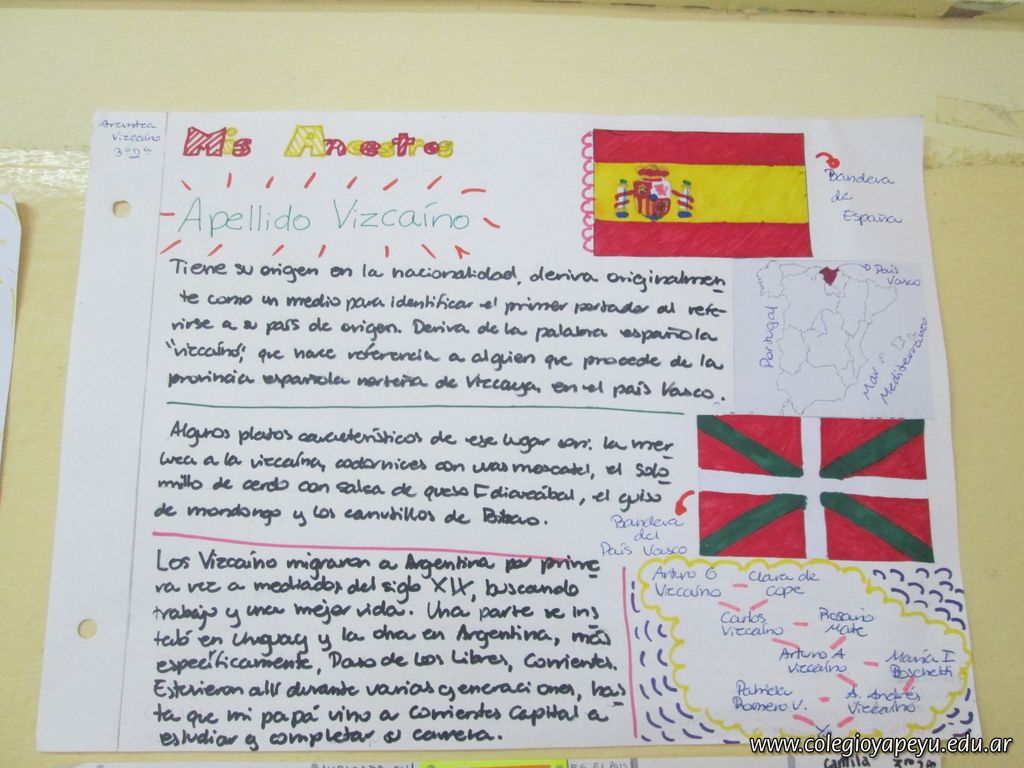 Vizcaíno
3º 2ª
Mis Ancestros
Apellido Vizcaíno
Tiene su origen en la nacionalidad, deriva originalmen
te como un medio para identificar el primer portador al refe-
rirse a su país de origen. Deriva de la palabra española
"vizcaíno", que hace referencia a alguien que procede de la
provincia española norteña de Vizcaya, en el país Vasco.
Algunos platos característicos de ese lugar son: la mer
luza a la vizcaína, codornices con uvas moscatel, el solo
millo de cerdo con salsa de queso Idiazábal, el guiso
de mondongo y los canutillos de Bilbao.
Los Vizcaíno migraron a Argentina por prime
ra vez a mediados del siglo XIX, buscando
trabajo y una mejor vida. Una parte se ins
taló en Uruguay y la otra en Argentina, más
específicamente, Paso de Los Libres, Corrientes.
Estuvieron allí durante varias generaciones, has
ta que mi papá vino a Corrientes Capital a
estudiar y completar su carrera.
Bandera
de
España
País
Vasco
Portugal
Mar Mediterráneo
Bandera
del
País Vasco
Arturo O
Vizcaíno
Clara de
Cope
Carlos
Vizcaíno
Rosario
Mate
Arturo A
Vizcaíno
María I
Boschetti
Patricia
Romero V.
A. Andrés
Vizcaíno
Yo
www.colegioyapeyu.edu.ar
Camila